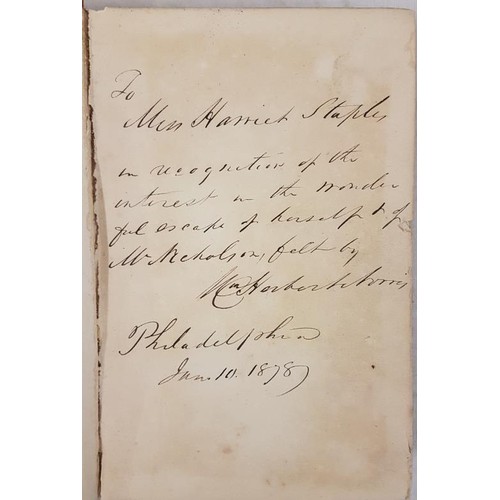 To
Miss Harriet Staples
in recognition of the
interest in the wonder
ful escape of herself & of
Mr Nicholson, felt by
Wm Herbert Norris
Philadelphia
Jan. 10. 1878